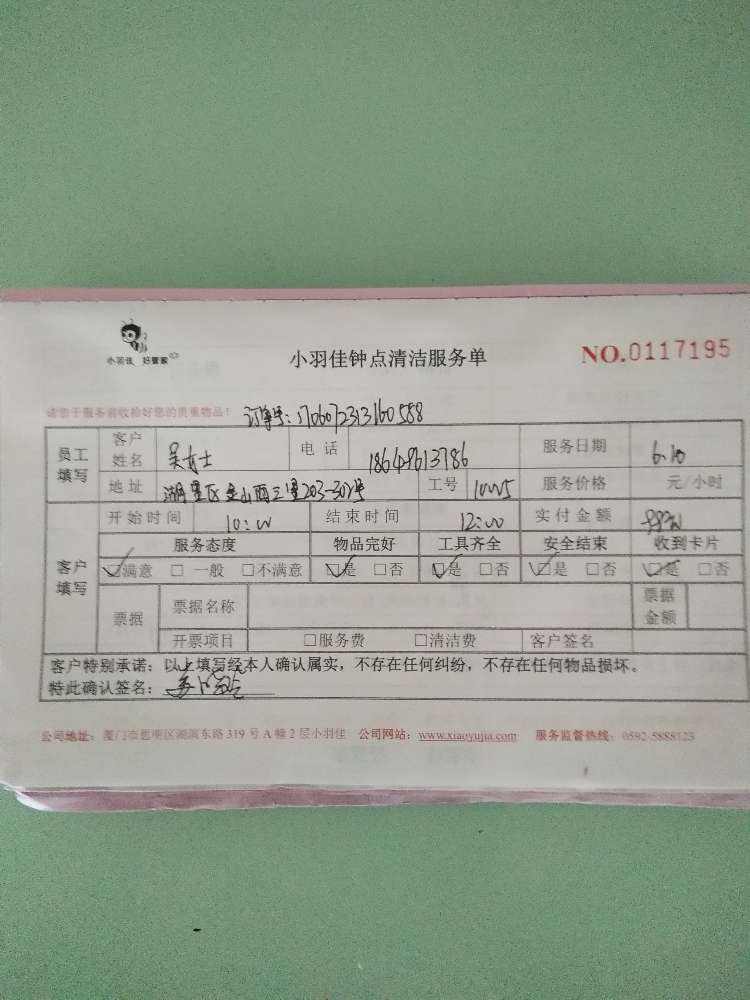 小羽佳 好管家
小羽佳钟点清洁服务单 NO.0117195
请您于服务前收捡好您的贵重物品! 订单号:
员工填写 客户姓名 吴女士 电话 服务日期 6.10
地址 湖里区 203-302号 工号 10005 服务价格 元/小时
客户填写 开始时间 10:00 结束时间 12:00 实付金额
服务态度 物品完好 工具齐全 安全结束 收到卡片
☑满意 □一般 □不满意 ☑是 □否 ☑是 □否 ☑是 □否 ☑是 □否
票据 票据名称 票据金额
开票项目 □服务费 □清洁费 客户签名
客户特别承诺：以上填写经本人确认属实，不存在任何纠纷，不存在任何物品损坏。
特此确认签名：
公司地址：厦门市思明区湖滨东路 319 号 A 幢 2 层小羽佳 公司网站：www.xiaoyujia.com 服务监督热线：0592-5888123